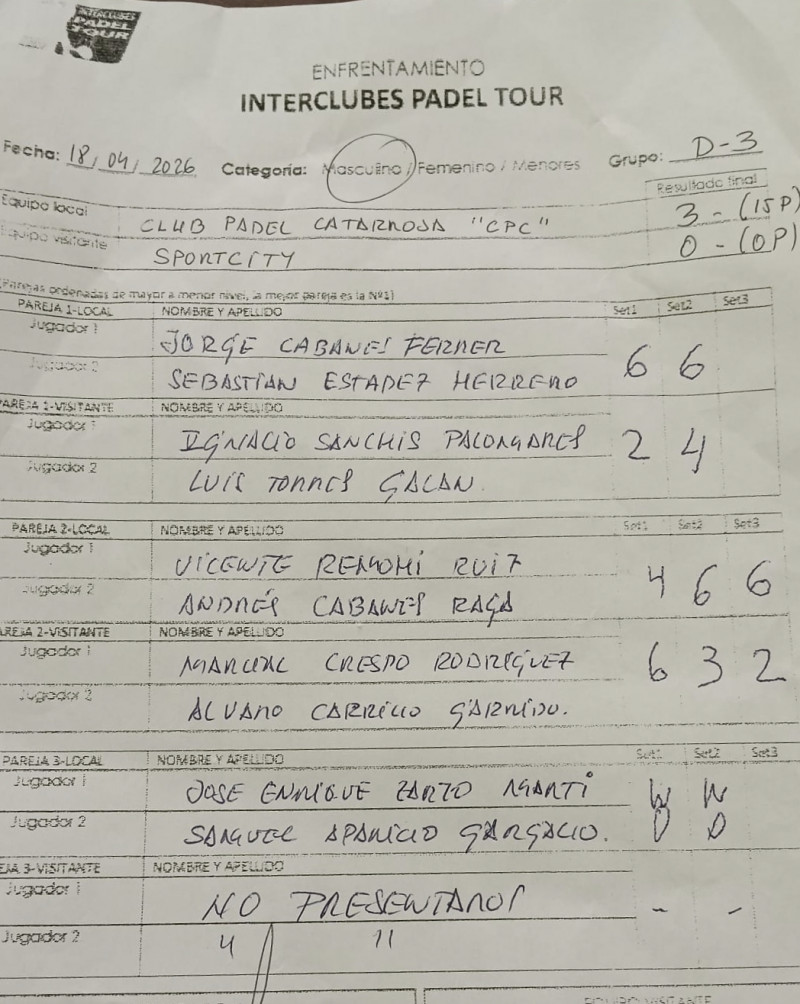 INTERCLUBES
PADEL
TOUR
ENFRENTAMIENTO
INTERCLUBES PADEL TOUR
Fecha: 18/04/2026 Categoría: Masculino / Femenino / Menores Grupo: D-3
Resultado final
Equipo local CLUB PADEL CATARROJA "CPC" 3 - (15P)
Equipo visitante SPORTCITY 0 - (0P)
(Parejas ordenadas de mayor a menor nivel, la mejor pareja es la Nº1)
PAREJA 1-LOCAL NOMBRE Y APELLIDO Set1 Set2 Set3
Jugador 1 JORGE CABANES FERRER
Jugador 2 SEBASTIAN ESTADEZ HERRERO 6 6
PAREJA 1-VISITANTE NOMBRE Y APELLIDO
Jugador 1 IGNACIO SANCHIS PALOMARES 2 4
Jugador 2 LUIS TORRES GALAN
PAREJA 2-LOCAL NOMBRE Y APELLIDO Set1 Set2 Set3
Jugador 1 VICENTE REMOHI RUIZ
Jugador 2 ANDRÉS CABANES RAGA 4 6 6
AREJA 2-VISITANTE NOMBRE Y APELLIDO
Jugador 1 MARCIAL CRESPO RODRIGUEZ 6 3 2
Jugador 2 ALVARO CARRILLO GARRIDO.
PAREJA 3-LOCAL NOMBRE Y APELLIDO Set1 Set2 Set3
Jugador 1 JOSE ENRIQUE ZARZO MARTI W W
Jugador 2 SAMUEL APARICIO GARGALLO. O O
EJA 3-VISITANTE NOMBRE Y APELLIDO
Jugador 1 NO PRESENTAROS - -
Jugador 2 4 11
EQUIPO VISITANTE